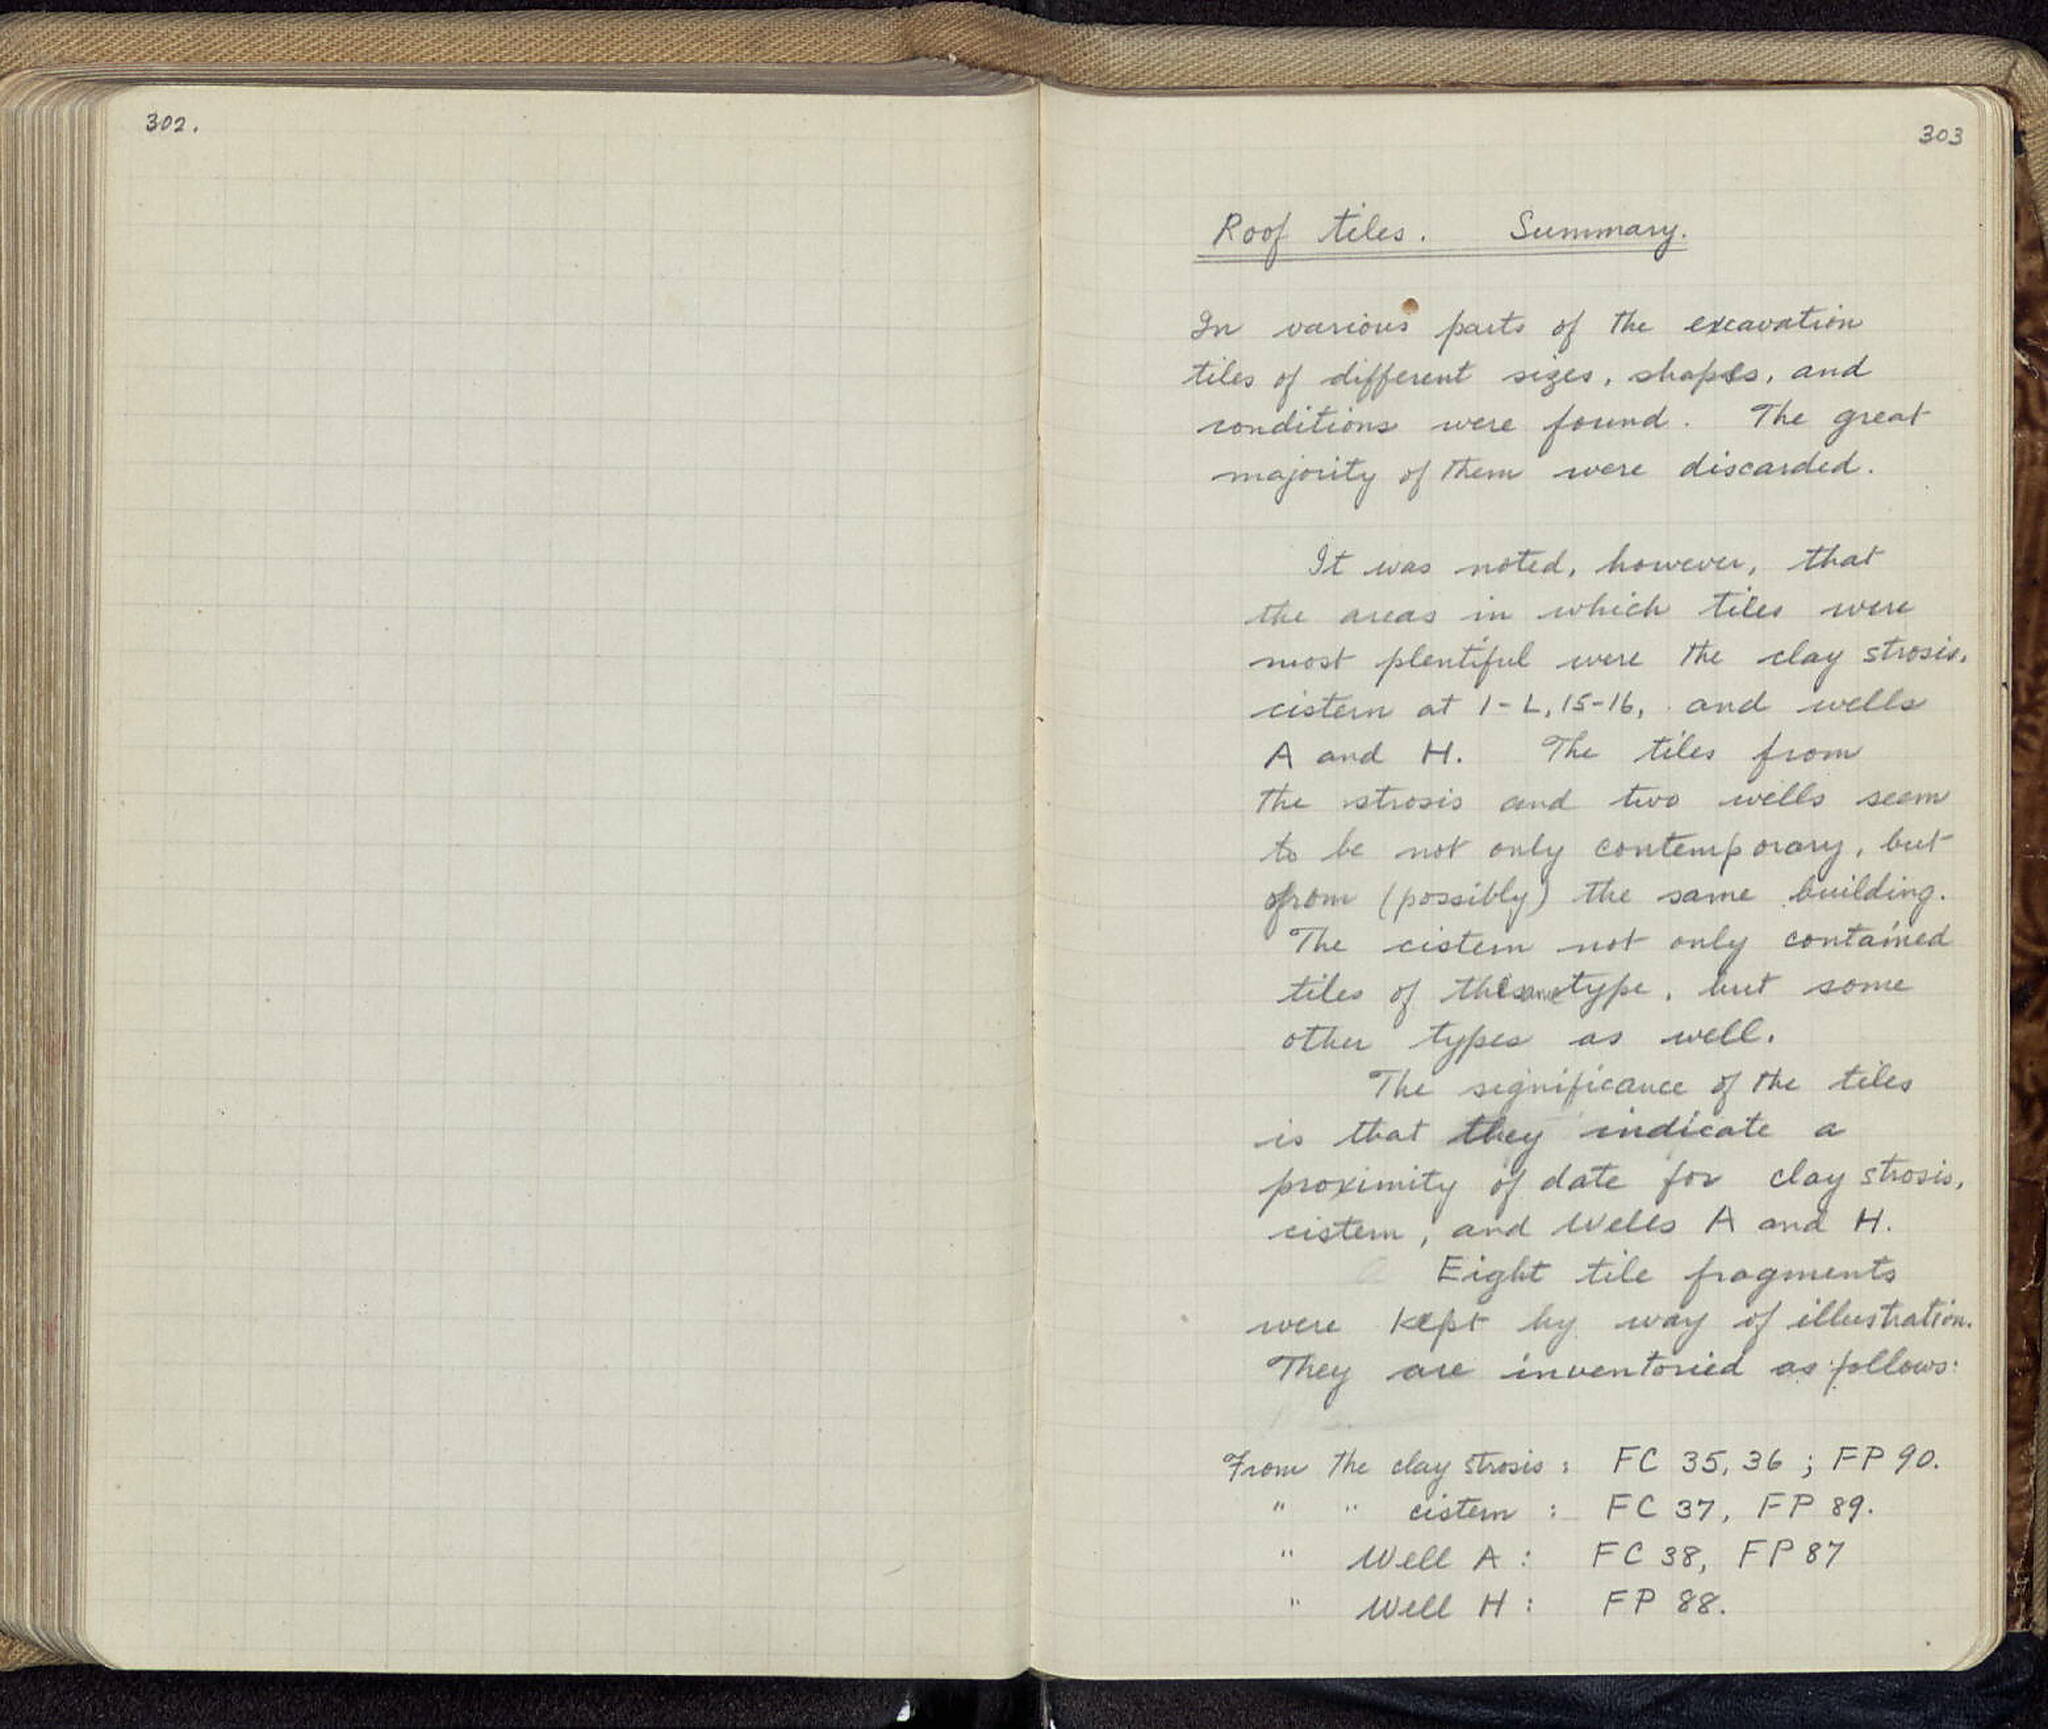 302.
303
Roof tiles. Summary.
In various parts of the excavation
tiles of different sizes, shapes, and
conditions were found. The great
majority of them were discarded.
It was noted, however, that
the areas in which tiles were
most plentiful were the clay strosis,
cistern at 1-L, 15-16, and wells
A and H. The tiles from
the strosis and two wells seem
to be not only contemporary, but
from (possibly) the same building.
The cistern not only contained
tiles of type, but some
other types as well.
The significance of the tiles
is that they indicate a
proximity of date for clay strosis,
cistern, and Wells A and H.
Eight tile fragments
were kept by way of illustration.
They are inventoried as follows:
From the clay strosis: FC 35, 36; FP 90.
" " cistern: FC 37, FP 89.
" Well A: FC 38, FP 87
" Well H: FP 88.